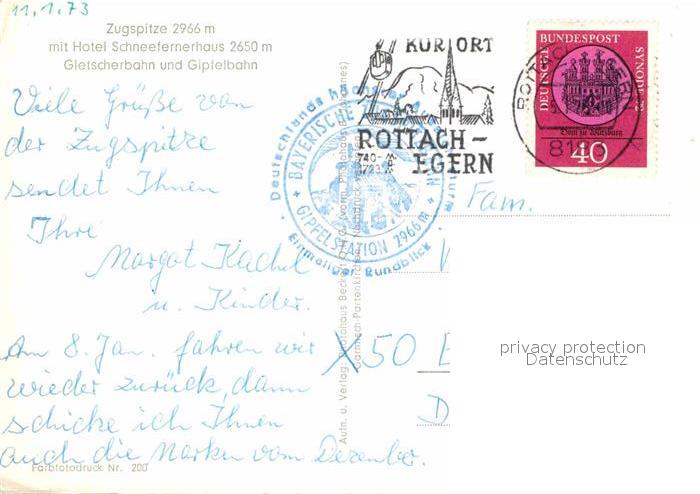 11.1.73
Zugspitze 2966 m
mit Hotel Schneefernerhaus 2650 m
Gletscherbahn und Gipfelbahn
Viele Grüße von
der Zugspitze
sendet Ihnen
Ihre
Margot Kachel
u. Kinder.
Am 8. Jan. fahren wir
wieder zurück, dann
schicke ich Ihnen
auch die Marken vom Dezember.
Farbfotodruck Nr. 200
KURORT
ROTTACH-
EGERN
DEUTSCHE BUNDESPOST
SYNODE 72
Dom zu Würzburg
40
BAYERISCHE
GIPFELSTATION 2966 m
Einmaliger Rundblick
Aufn. u. Verlag
Garmisch-Partenkirchen
Fam.
X50
D
privacy protection
Datenschutz